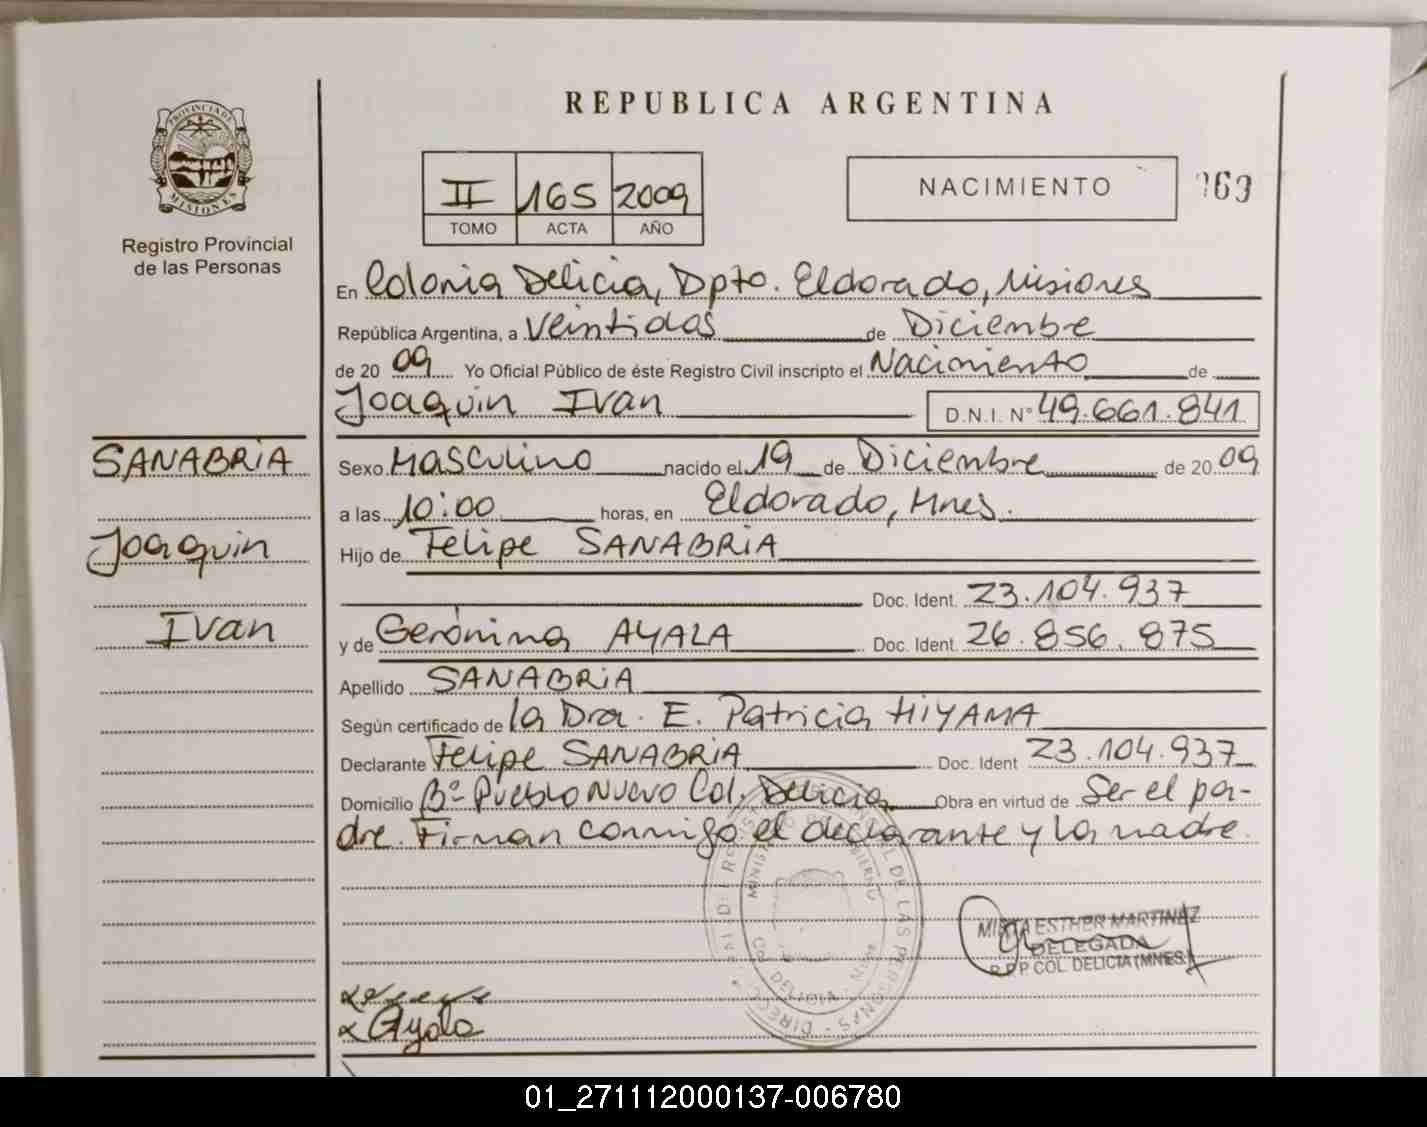 REPUBLICA ARGENTINA
PROVINCIA DE
MISIONES
Registro Provincial
de las Personas
II 165 2009
TOMO ACTA AÑO
NACIMIENTO
En Colonia Delicia, Dpto. Eldorado, Misiones
República Argentina, a Veintidos de Diciembre
de 20 09 Yo Oficial Público de éste Registro Civil inscripto el Nacimiento de
Joaquin Ivan D.N.I. N° 49.661.841
SANABRIA
Joaquin
Ivan
Sexo Masculino nacido el 19 de Diciembre de 20 09
a las 10:00 horas, en Eldorado, Mnes.
Hijo de Felipe SANABRIA
Doc. Ident. 23.104.937
y de Gerónima AYALA Doc. Ident. 26.856.875
Apellido SANABRIA
Según certificado de la Dra. E. Patricia HIYAMA
Declarante Felipe SANABRIA Doc. Ident 23.104.937
Domicilio B° Pueblo Nuevo Col. Delicia Obra en virtud de Ser el pa-
dre. Firman conmigo el declarante y la madre.
MIRTA ESTHER MARTINEZ
DELEGADA
R.P.P COL. DELICIA (MNES.)
Ayala
01_271112000137-006780